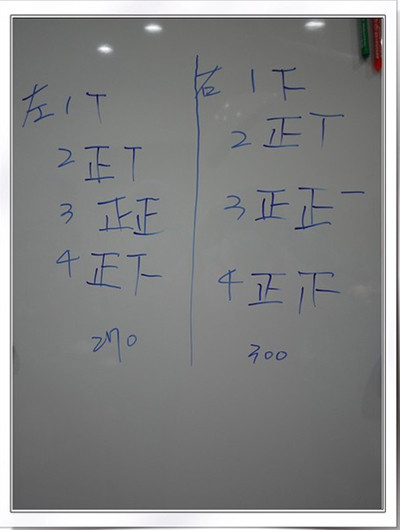 左 1 丅
2 正丅
3 正正
4 正下
270
右 1 下
2 正丅
3 正正一
4 正
300